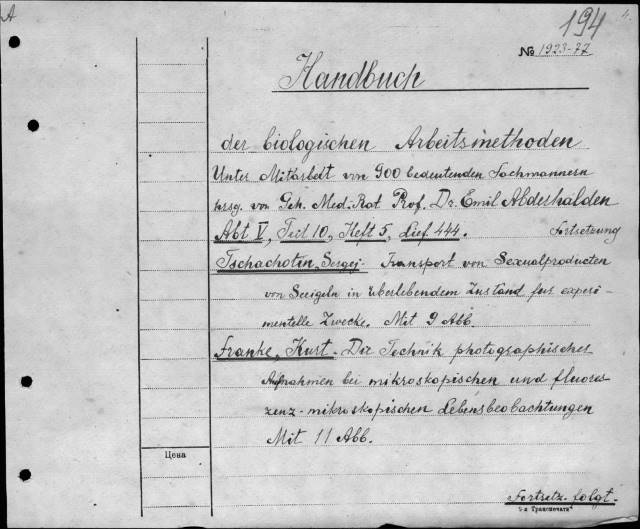 A
194
№ 1923-77
Handbuch
der biologischen Arbeitsmethoden
Unter Mitarbeit von 900 bedeutenden Fachmännern
hrsg. von Geh. Med. Rat Prof. Dr. Emil Abderhalden
Abt V, Teil 10, Heft 5, Lief 444. Fortsetzung
Tschachotin, Sergej- Transport von Sexualproducten
von Seeigeln in überlebendem Zustand für experi-
mentelle Zwecke. Mit 9 Abb.
Franke, Kurt. Die Technik photographischer
Aufnahmen bei mikroskopischen und fluores-
zenz-mikroskopischen Lebensbeobachtungen
Mit 11 Abb.
Цена
Fortsetz. folgt.
"Транспечати"